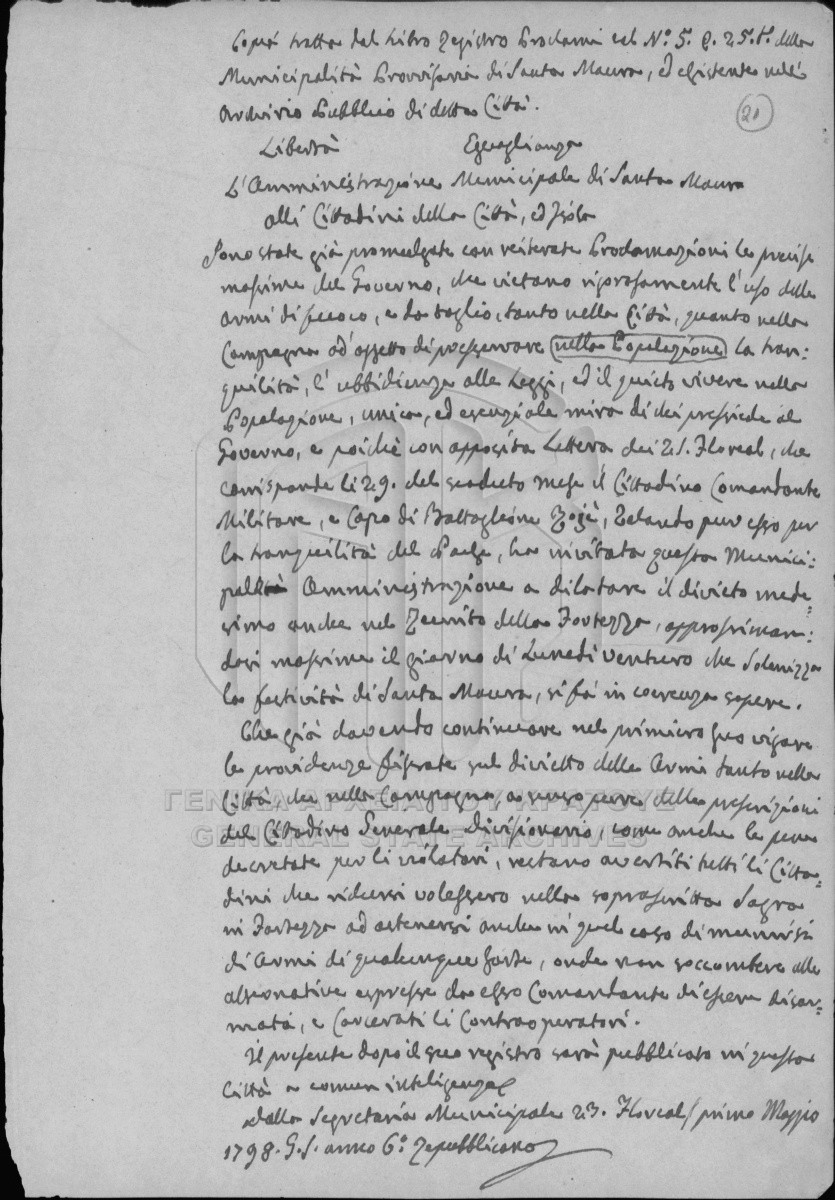 Copia tratta dal Libro Registro Proclami al N.º 5. p. 25. t.º della
Municipalità Provvisoria di Santa Maura, ed esistente nell'
Archivio Pubblico di detta Città.
20
Libertà Eguaglianza
L'Amministrazione Municipale di Santa Maura
alli Cittadini della Città, ed Isola
Sono state già promulgate con reiterate Proclamazioni le precise
massime del Governo, che vietano rigorosamente l'uso delle
armi di fuoco, e da taglio, tanto nella Città, quanto nella
Campagna ad oggetto di preservare nella Popolazione la tran:
quilità, l'ubbidienza alle Leggi, ed il quieto vivere nella
Popolazione, unica, ed esenziale mira di chi pressiede al
Governo, e poichè con apposita Lettera dei 21. Floreal, che
corrisponde li 29. del scaduto mese il Cittadino Comandante
Militare, e Capo di Battaglione, Zelando pur esso per
la tranquilità del Paese, ha invitata questa Munici:
palità Amministrazione a dilatare il divieto mede:
simo anche nel Recinto della Fortezza, approssiman:
dosi massime il giorno di Lunedì venturo che Solenizza
la festività di Santa Maura, si fà in coerenza sapere.
Che già dovendo continuare nel primiero suo vigore
le providenze fissate sul divietto delle Armi tanto nella
Città che nella Campagna a senso pure delle prescrizioni
del Cittadino Generale Divisionario, come anche le pene
decretate per li violatori, restano avertiti tutti li Citta:
dini che ridursi volessero nella soprascritta Sagra
in Fortezza ad astenersi anche in quel caso di munirsi
di Armi di qualunque sorte, onde non soccombere alle
alternative espresse da esso Comandante di essere disar:
mati, e Carcerati li Controoperatori.
Il presente dopo il suo registro sarà pubblicato in questa
Città a comun inteligenza
Dalla Segretaria Municipale 23. Floreal / primo Maggio
1798. G.S. anno 6.º Repubblicano
ΓΕΝΙΚΑ ΑΡΧΕΙΑ ΤΟΥ ΚΡΑΤΟΥΣ
GENERAL STATE ARCHIVES